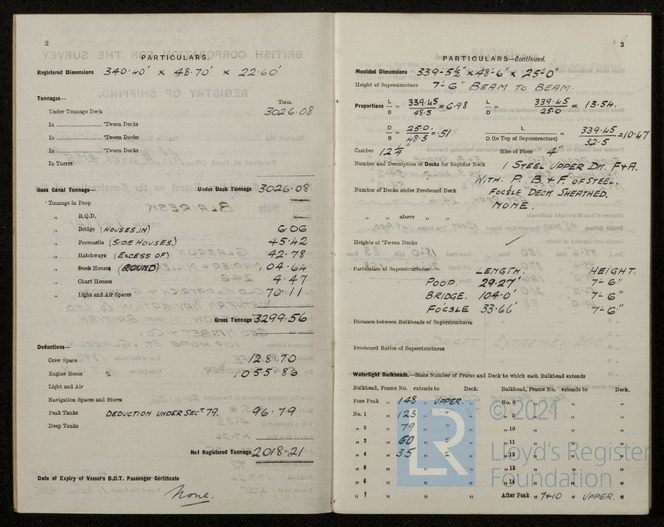 2
PARTICULARS.
Registered Dimensions 340·40' × 48·70' × 22·60'
Tonnages—
Tons.
Under Tonnage Deck 3026·08
In 'Tween Decks
In 'Tween Decks
In 'Tween Decks
In Turret
Suez Canal Tonnage Under Deck Tonnage 3026·08
" Tonnage in Poop
" R.Q.D.
" Bridge (HOUSES IN) 6·06
" Forecastle (SIDE HOUSES.) 45·42
" Hatchways (EXCESS OF) 42·78
" Deck Houses (ROUND) 104·64
" Chart Houses 4·47
" Light and Air Spaces 70·11
Gross Tonnage 3299·56
Deductions—
Crew Space 128·70
Engine Room 1,055·86
Light and Air
Navigation Spaces and Stores
Peak Tanks DEDUCTION UNDER SECT 79. 96·79
Deep Tanks
Net Registered Tonnage 2018·21
Date of Expiry of Vessel's B.O.T. Passenger Certificate
None.
3
PARTICULARS—Continued.
Moulded Dimensions 339-5½" × 48'-6" × 25'-0"
Height of Superstructure 7'-6" BEAM TO BEAM.
Proportions L/B = 339.45/48.5 = 6.98 L/D = 339.45/25.0 = 13.54.
D/B = 25.0./48.5 = .51 L/D (to Top of Superstructure) = 339.45/32.5 = 10.47
Camber 12¼" Rise of Floor 4"
Number and Description of Decks for Register Book 1 STEEL UPPER DK. F&A.
WITH P. B. & F. OF STEEL.
Number of Decks under Freeboard Deck FOCSLE DECK SHEATHED.
" " above " " NONE.
Heights of 'Tween Decks
Particulars of Superstructures LENGTH. HEIGHT.
POOP. 29·27' 7'-6"
BRIDGE. 104·0' 7'-6"
FOCSLE 33·66' 7'-6"
Distance between Bulkheads of Superstructures
Freeboard Ratios of Superstructures
Watertight Bulkheads.—State Number of Frame and Deck to which each Bulkhead extends
Bulkhead, Frame No. extends to Deck. Bulkhead, Frame No. extends to Deck.
Fore Peak " 148 " UPPER. " No. 8 " " "
No. 1 " 123 " " " 9 " " "
" 2 " 79 " " " 10 " " "
" 3 " 60 " " " 11 " " "
" 4 " 35 " " " 12 " " "
" 13
" 14
" 7 " " " After Peak " 7+10 " UPPER. "
LR
© 2021
Lloyd's Register
Foundation